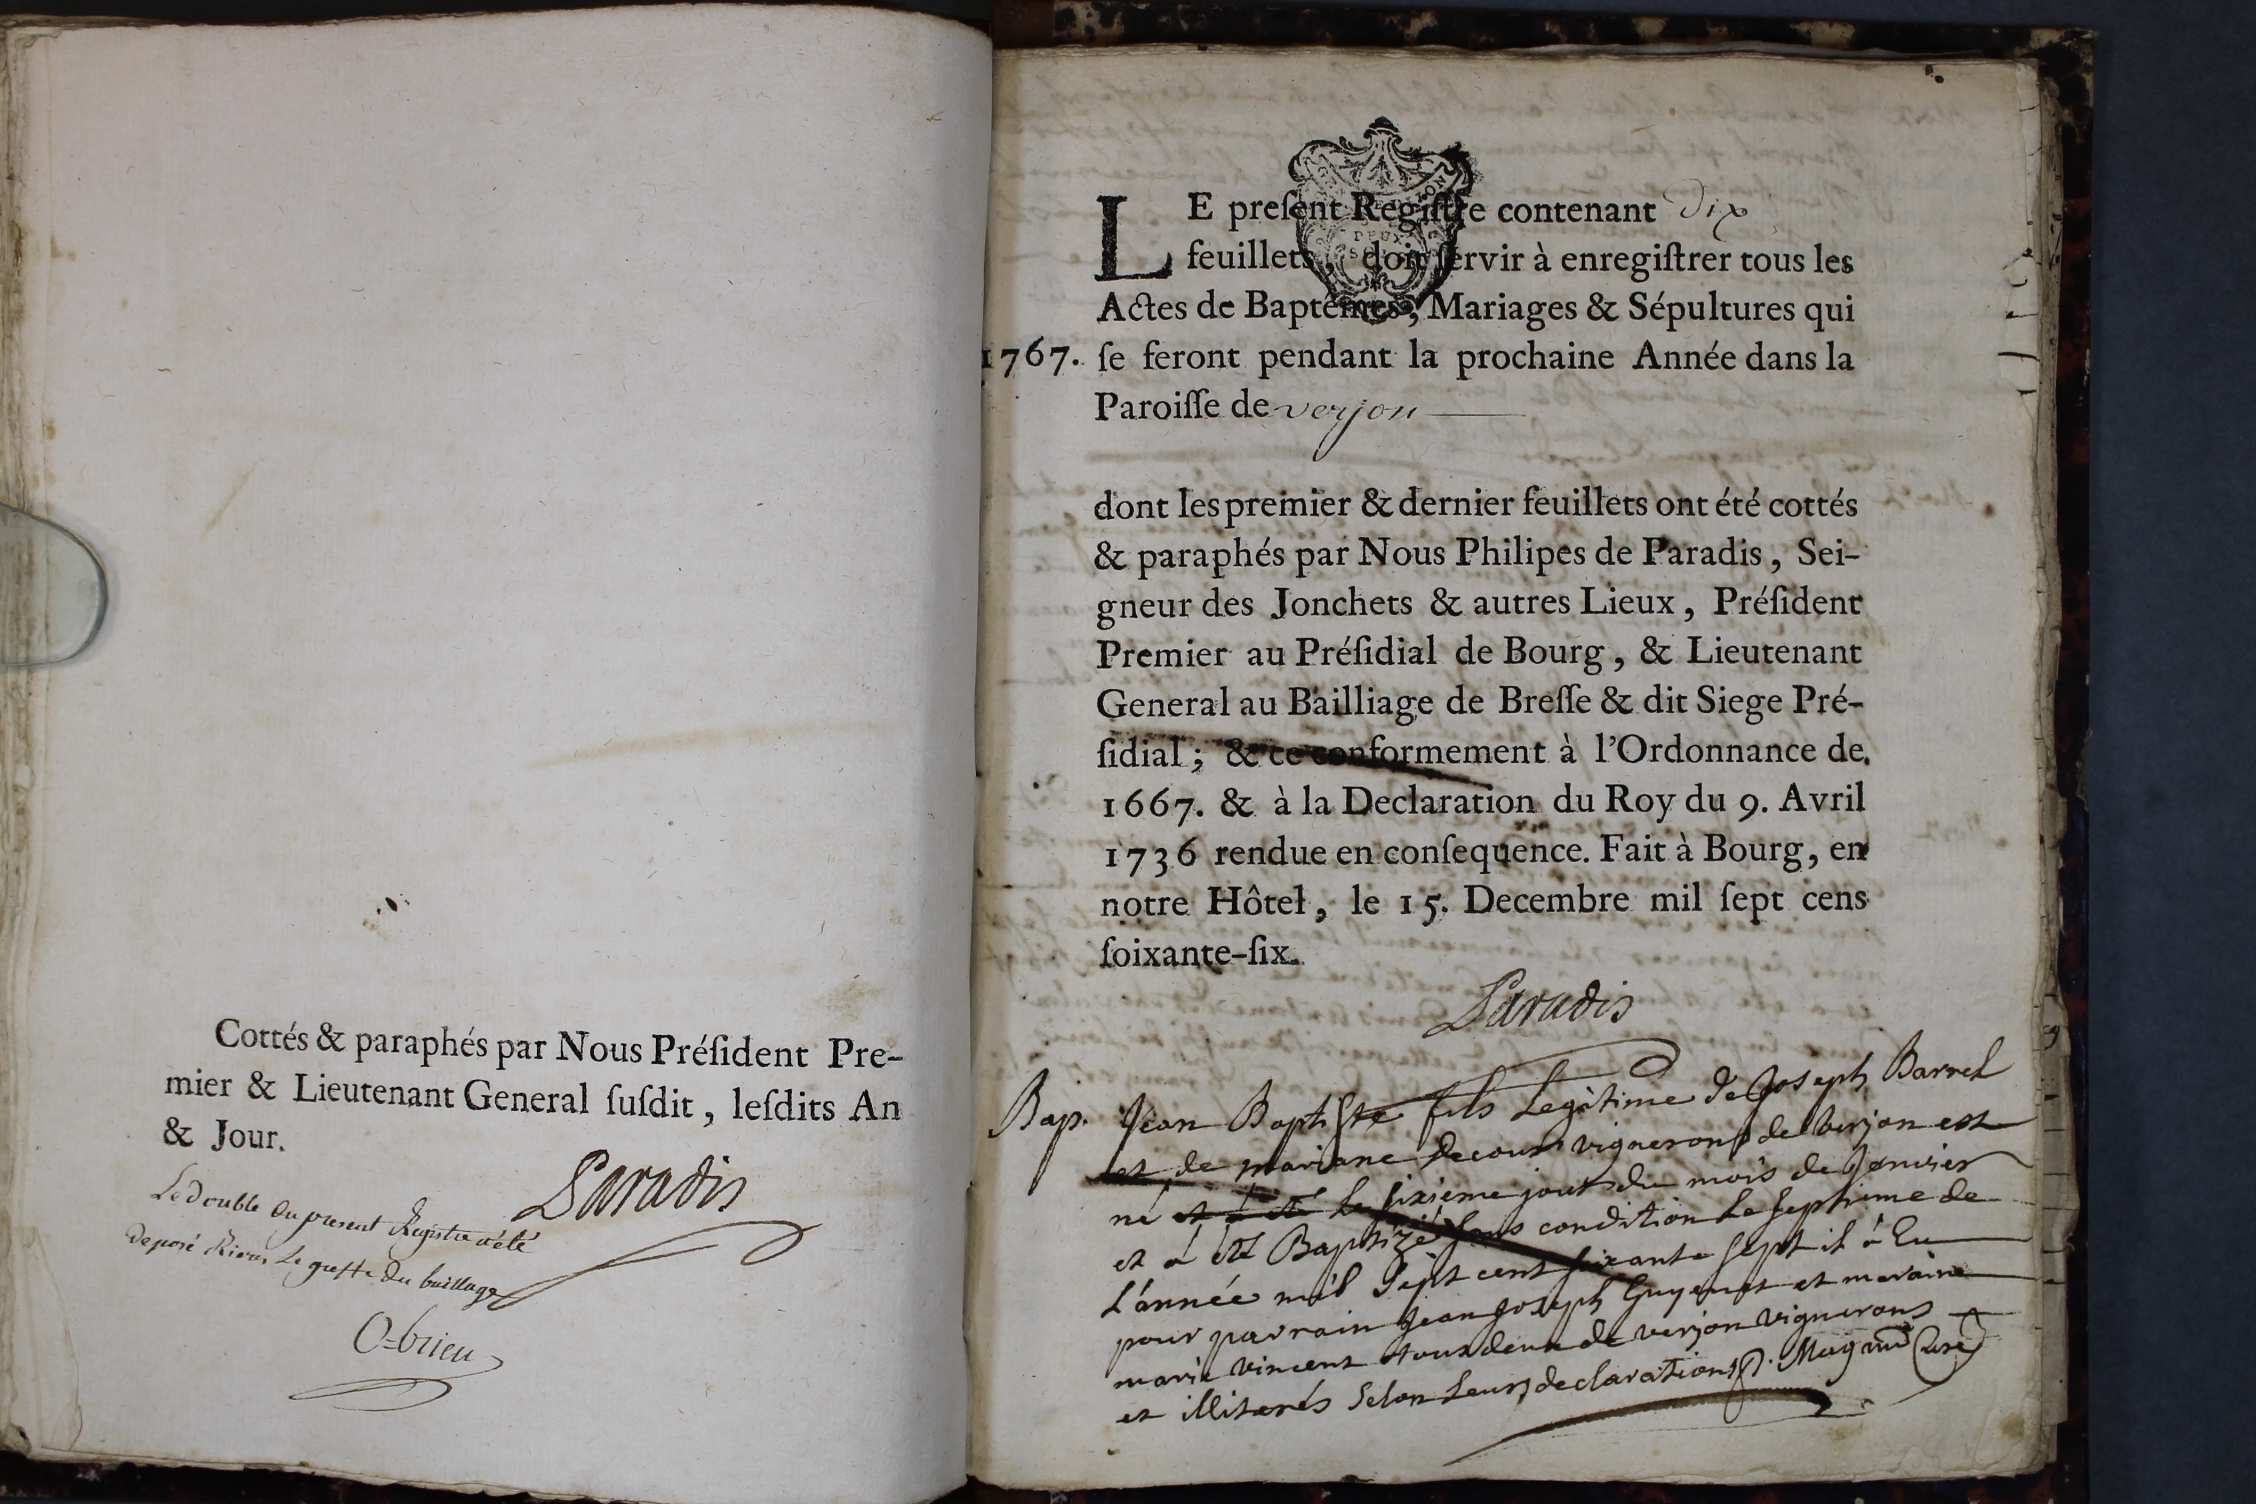 Cottés & paraphés par Nous Préſident Pre-
mier & Lieutenant General ſuſdit, leſdits An
& Jour.
Paradis
Le double du present Registre a été
deposé Riere Le greffe du baillage
O-brien
LE preſent Regiſtre contenant dix
feuillets, doit ſervir à enregiſtrer tous les
Actes de Baptêmes, Mariages & Sépultures qui
1767. ſe feront pendant la prochaine Année dans la
Paroiſſe de verjon
dont les premier & dernier feuillets ont été cottés
& paraphés par Nous Philipes de Paradis, Sei-
gneur des Jonchets & autres Lieux, Préſident
Premier au Préſidial de Bourg, & Lieutenant
General au Bailliage de Breſſe & dit Siege Pré-
ſidial; & ce conformement à l'Ordonnance de
1667. & à la Declaration du Roy du 9. Avril
1736 rendue en conſequence. Fait à Bourg, en
notre Hôtel, le 15. Decembre mil ſept cens
ſoixante-ſix.
Paradis
Bap. Jean Baptiste fils Legitime de Joseph Barrel
et de mariane Decour vignerons de Verjon est
né et a été Le sixieme jour du mois de Janvier
et a été Baptizé sous condition Le septieme de
L'année mil Sept cent soixante sept il a Eu
pour parrain Jean Joseph Guyenet et maraine
marie vincent tous deux de verjon vignerons
et illiterés Selon Leurs declarations Curé